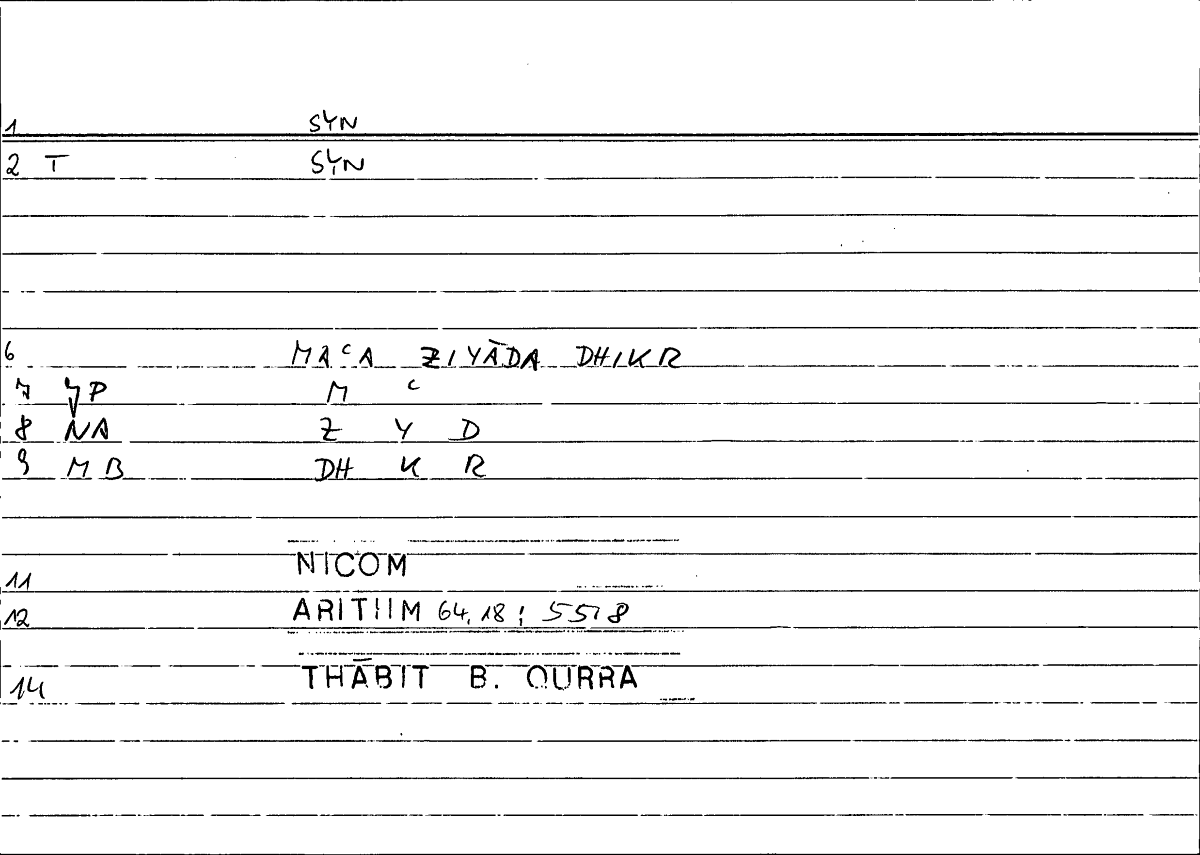 1 SYN
2 T SYN
6 MAᶜA ZIYĀDA DHIKR
7 P M ᶜ
8 NA Z Y D
9 MB DH K R
11 NICOM
12 ARITHM 64,18; 55,8
14 THĀBIT B. QURRA